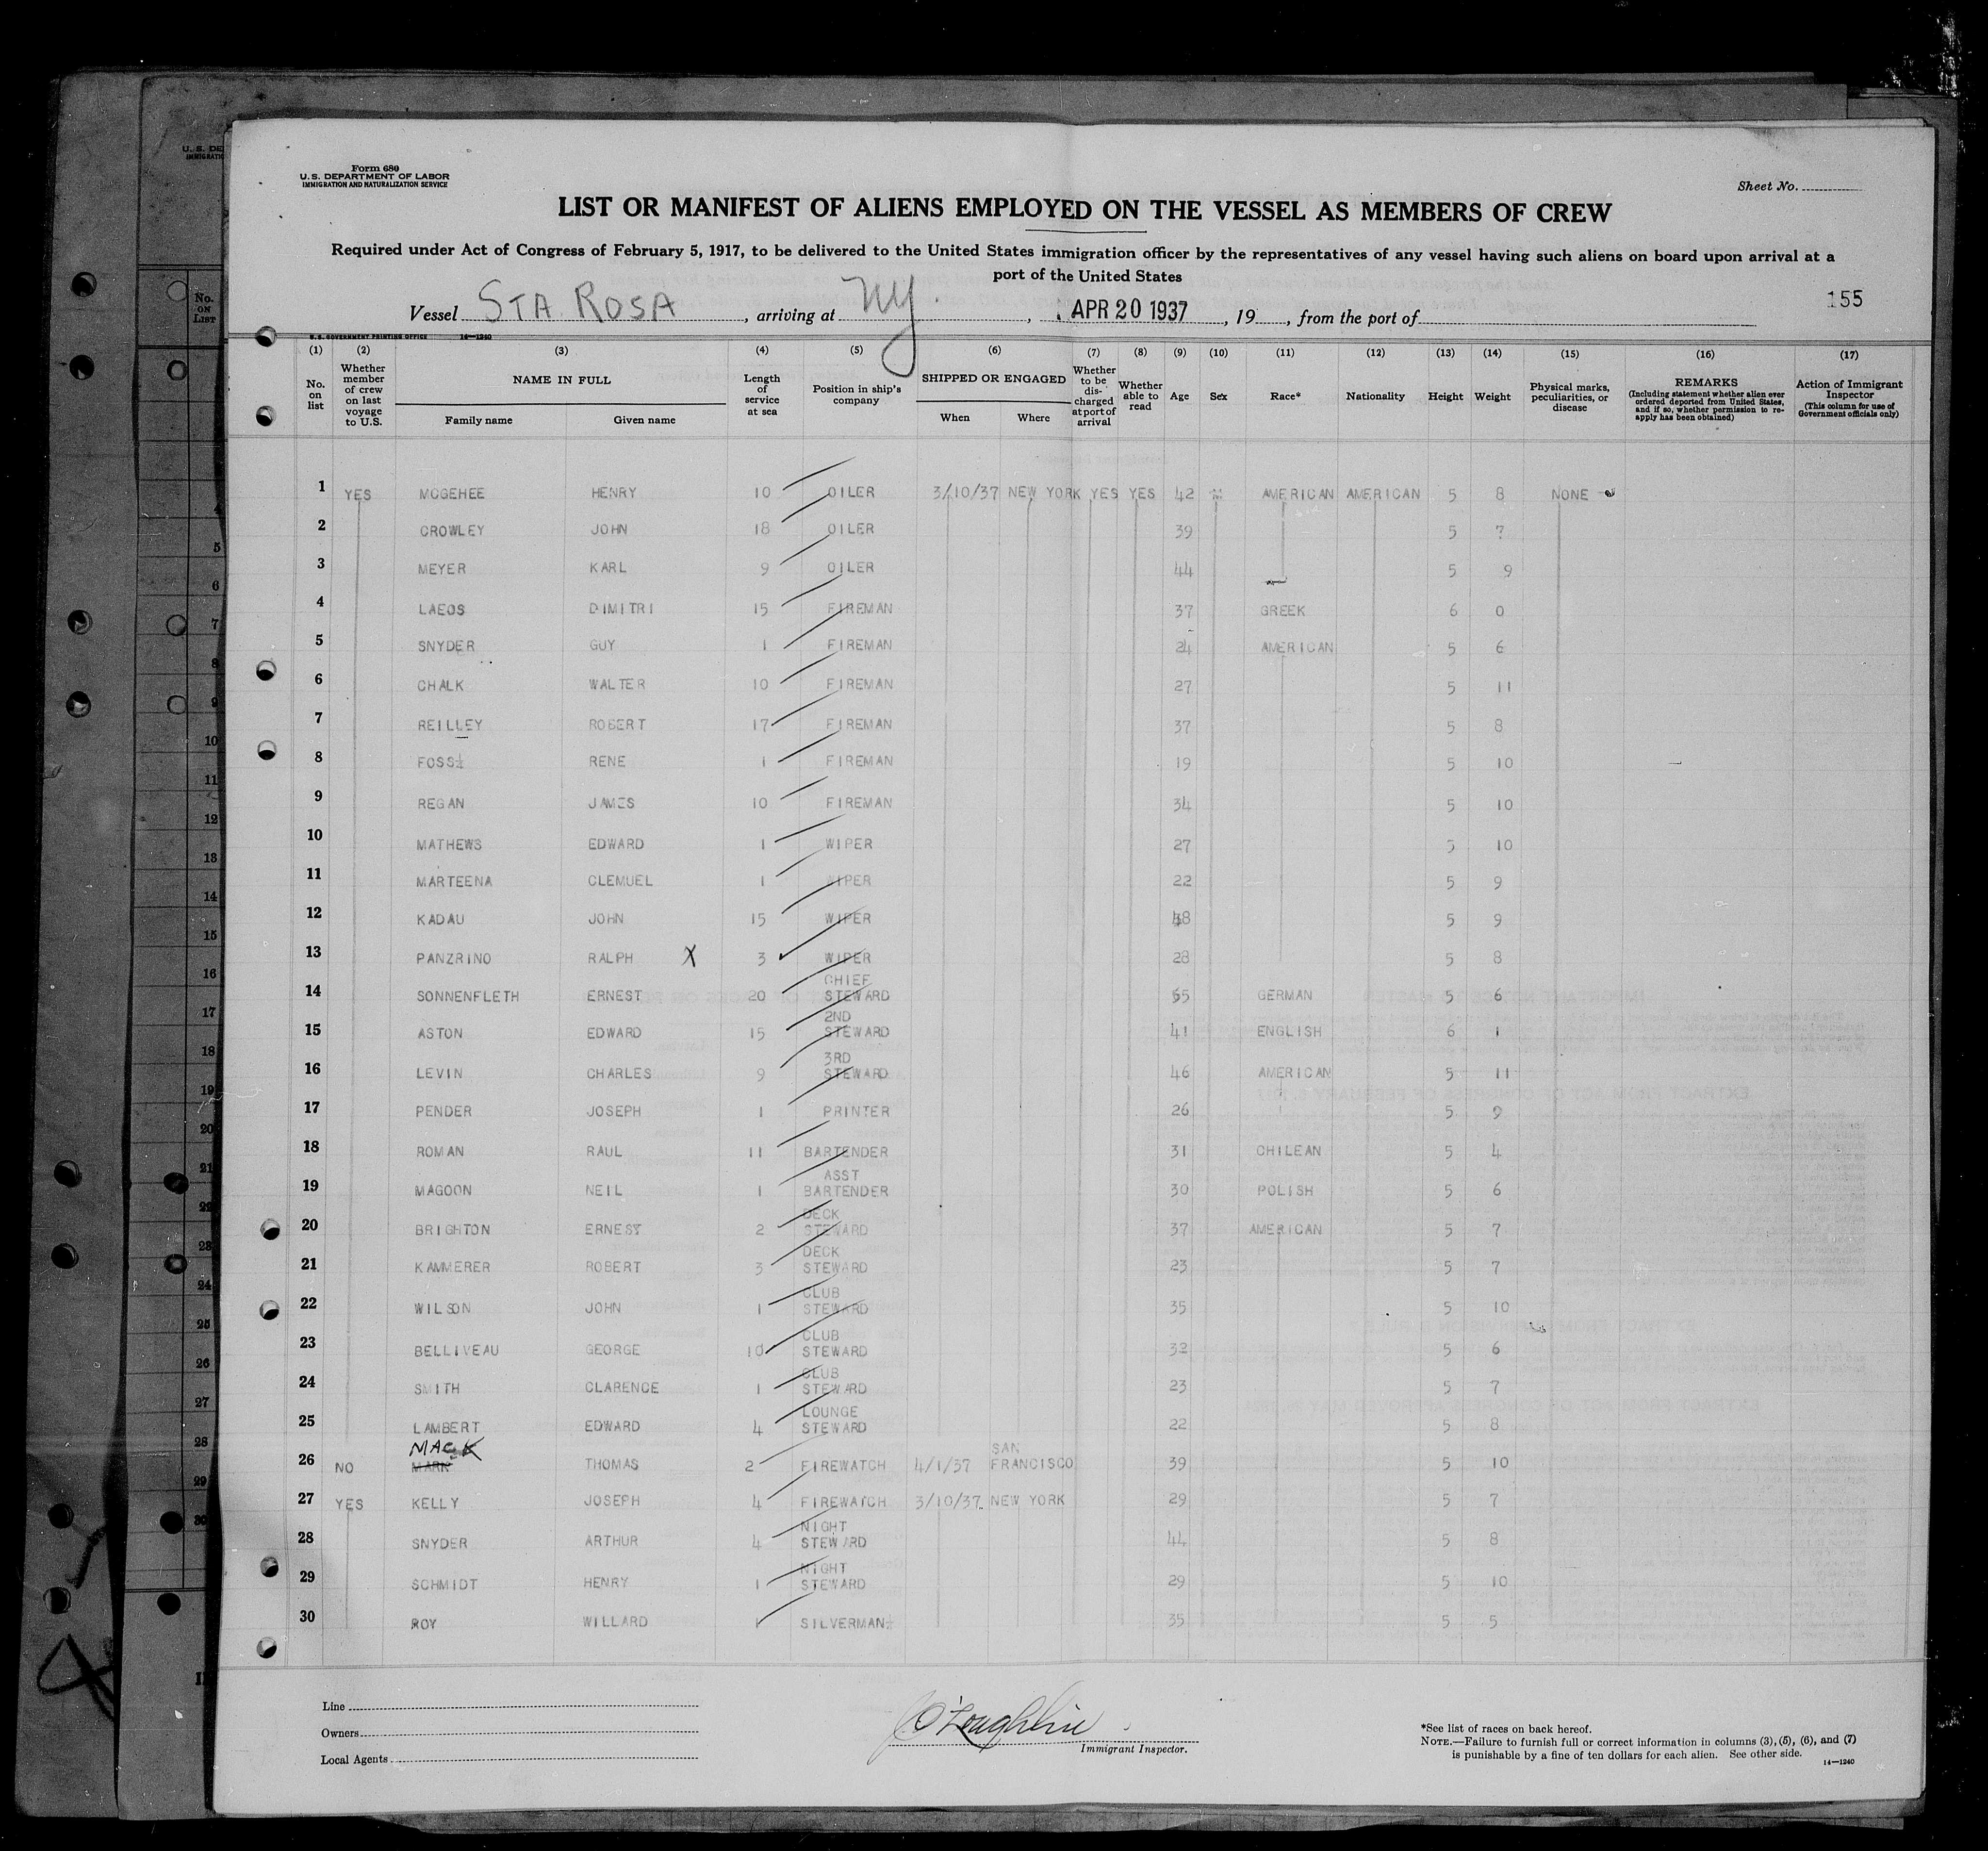 U. S. DE
IMMIGRATIO
Form 680
U.S. DEPARTMENT OF LABOR
IMMIGRATION AND NATURALIZATION SERVICE
Sheet No.
LIST OR MANIFEST OF ALIENS EMPLOYED ON THE VESSEL AS MEMBERS OF CREW
Required under Act of Congress of February 5, 1917, to be delivered to the United States immigration officer by the representatives of any vessel having such aliens on board upon arrival at a
port of the United States
155
Vessel STA ROSA, arriving at NY., APR 20 1937, 19, from the port of
U. S. GOVERNMENT PRINTING OFFICE 14—1240
(1) (2) (3) (4) (5) (6) (7) (8) (9) (10) (11) (12) (13) (14) (15) (16) (17)
No. on list
Whether member of crew on last voyage to U.S.
NAME IN FULL
Family name Given name
Length of service at sea
Position in ship's company
SHIPPED OR ENGAGED
When Where
Whether to be discharged at port of arrival
Whether able to read
Age Sex Race* Nationality Height Weight
Physical marks, peculiarities, or disease
REMARKS
(Including statement whether alien ever ordered deported from United States, and if so, whether permission to reapply has been obtained)
Action of Immigrant Inspector
(This column for use of Government officials only)
1 YES MCGEHEE HENRY 10 OILER 3/10/37 NEW YORK YES YES 42 M AMERICAN AMERICAN 5 8 NONE
2 CROWLEY JOHN 18 OILER 39 5 7
3 MEYER KARL 9 OILER 44 5 9
4 LAEOS DIMITRI 15 FIREMAN 37 GREEK 6 0
5 SNYDER GUY 1 FIREMAN 24 AMERICAN 5 6
6 CHALK WALTER 10 FIREMAN 27 5 11
7 REILLEY ROBERT 17 FIREMAN 37 5 8
8 FOSS RENE 1 FIREMAN 19 5 10
9 REGAN JAMES 10 FIREMAN 34 5 10
10 MATHEWS EDWARD 1 WIPER 27 5 10
11 MARTEENA CLEMUEL 1 WIPER 22 5 9
12 KADAU JOHN 15 WIPER 48 5 9
13 PANZRINO RALPH X 3 WIPER 28 5 8
14 SONNENFLETH ERNEST 20 CHIEF STEWARD 55 GERMAN 5 6
15 ASTON EDWARD 15 2ND STEWARD 41 ENGLISH 6 1
16 LEVIN CHARLES 9 3RD STEWARD 46 AMERICAN 5 11
17 PENDER JOSEPH 1 PRINTER 26 5 9
18 ROMAN RAUL 11 BARTENDER 31 CHILEAN 5 4
19 MAGOON NEIL 1 ASST BARTENDER 30 POLISH 5 6
20 BRIGHTON ERNEST 2 DECK STEWARD 37 AMERICAN 5 7
21 KAMMERER ROBERT 3 DECK STEWARD 23 5 7
22 WILSON JOHN 1 CLUB STEWARD 35 5 10
23 BELLIVEAU GEORGE 10 CLUB STEWARD 32 5 6
24 SMITH CLARENCE 1 CLUB STEWARD 23 5 7
25 LAMBERT EDWARD 4 LOUNGE STEWARD 22 5 8
26 NO MACK MARK THOMAS 2 FIREWATCH 4/1/37 SAN FRANCISCO 39 5 10
27 YES KELLY JOSEPH 4 FIREWATCH 3/10/37 NEW YORK 29 5 7
28 SNYDER ARTHUR 4 NIGHT STEWARD 44 5 8
29 SCHMIDT HENRY 1 NIGHT STEWARD 29 5 10
30 ROY WILLARD 1 SILVERMAN 35 5 5
Line
Owners
Local Agents
O'Loughlin
Immigrant Inspector.
*See list of races on back hereof.
NOTE.—Failure to furnish full or correct information in columns (3), (5), (6), and (7)
is punishable by a fine of ten dollars for each alien. See other side.
14—1240